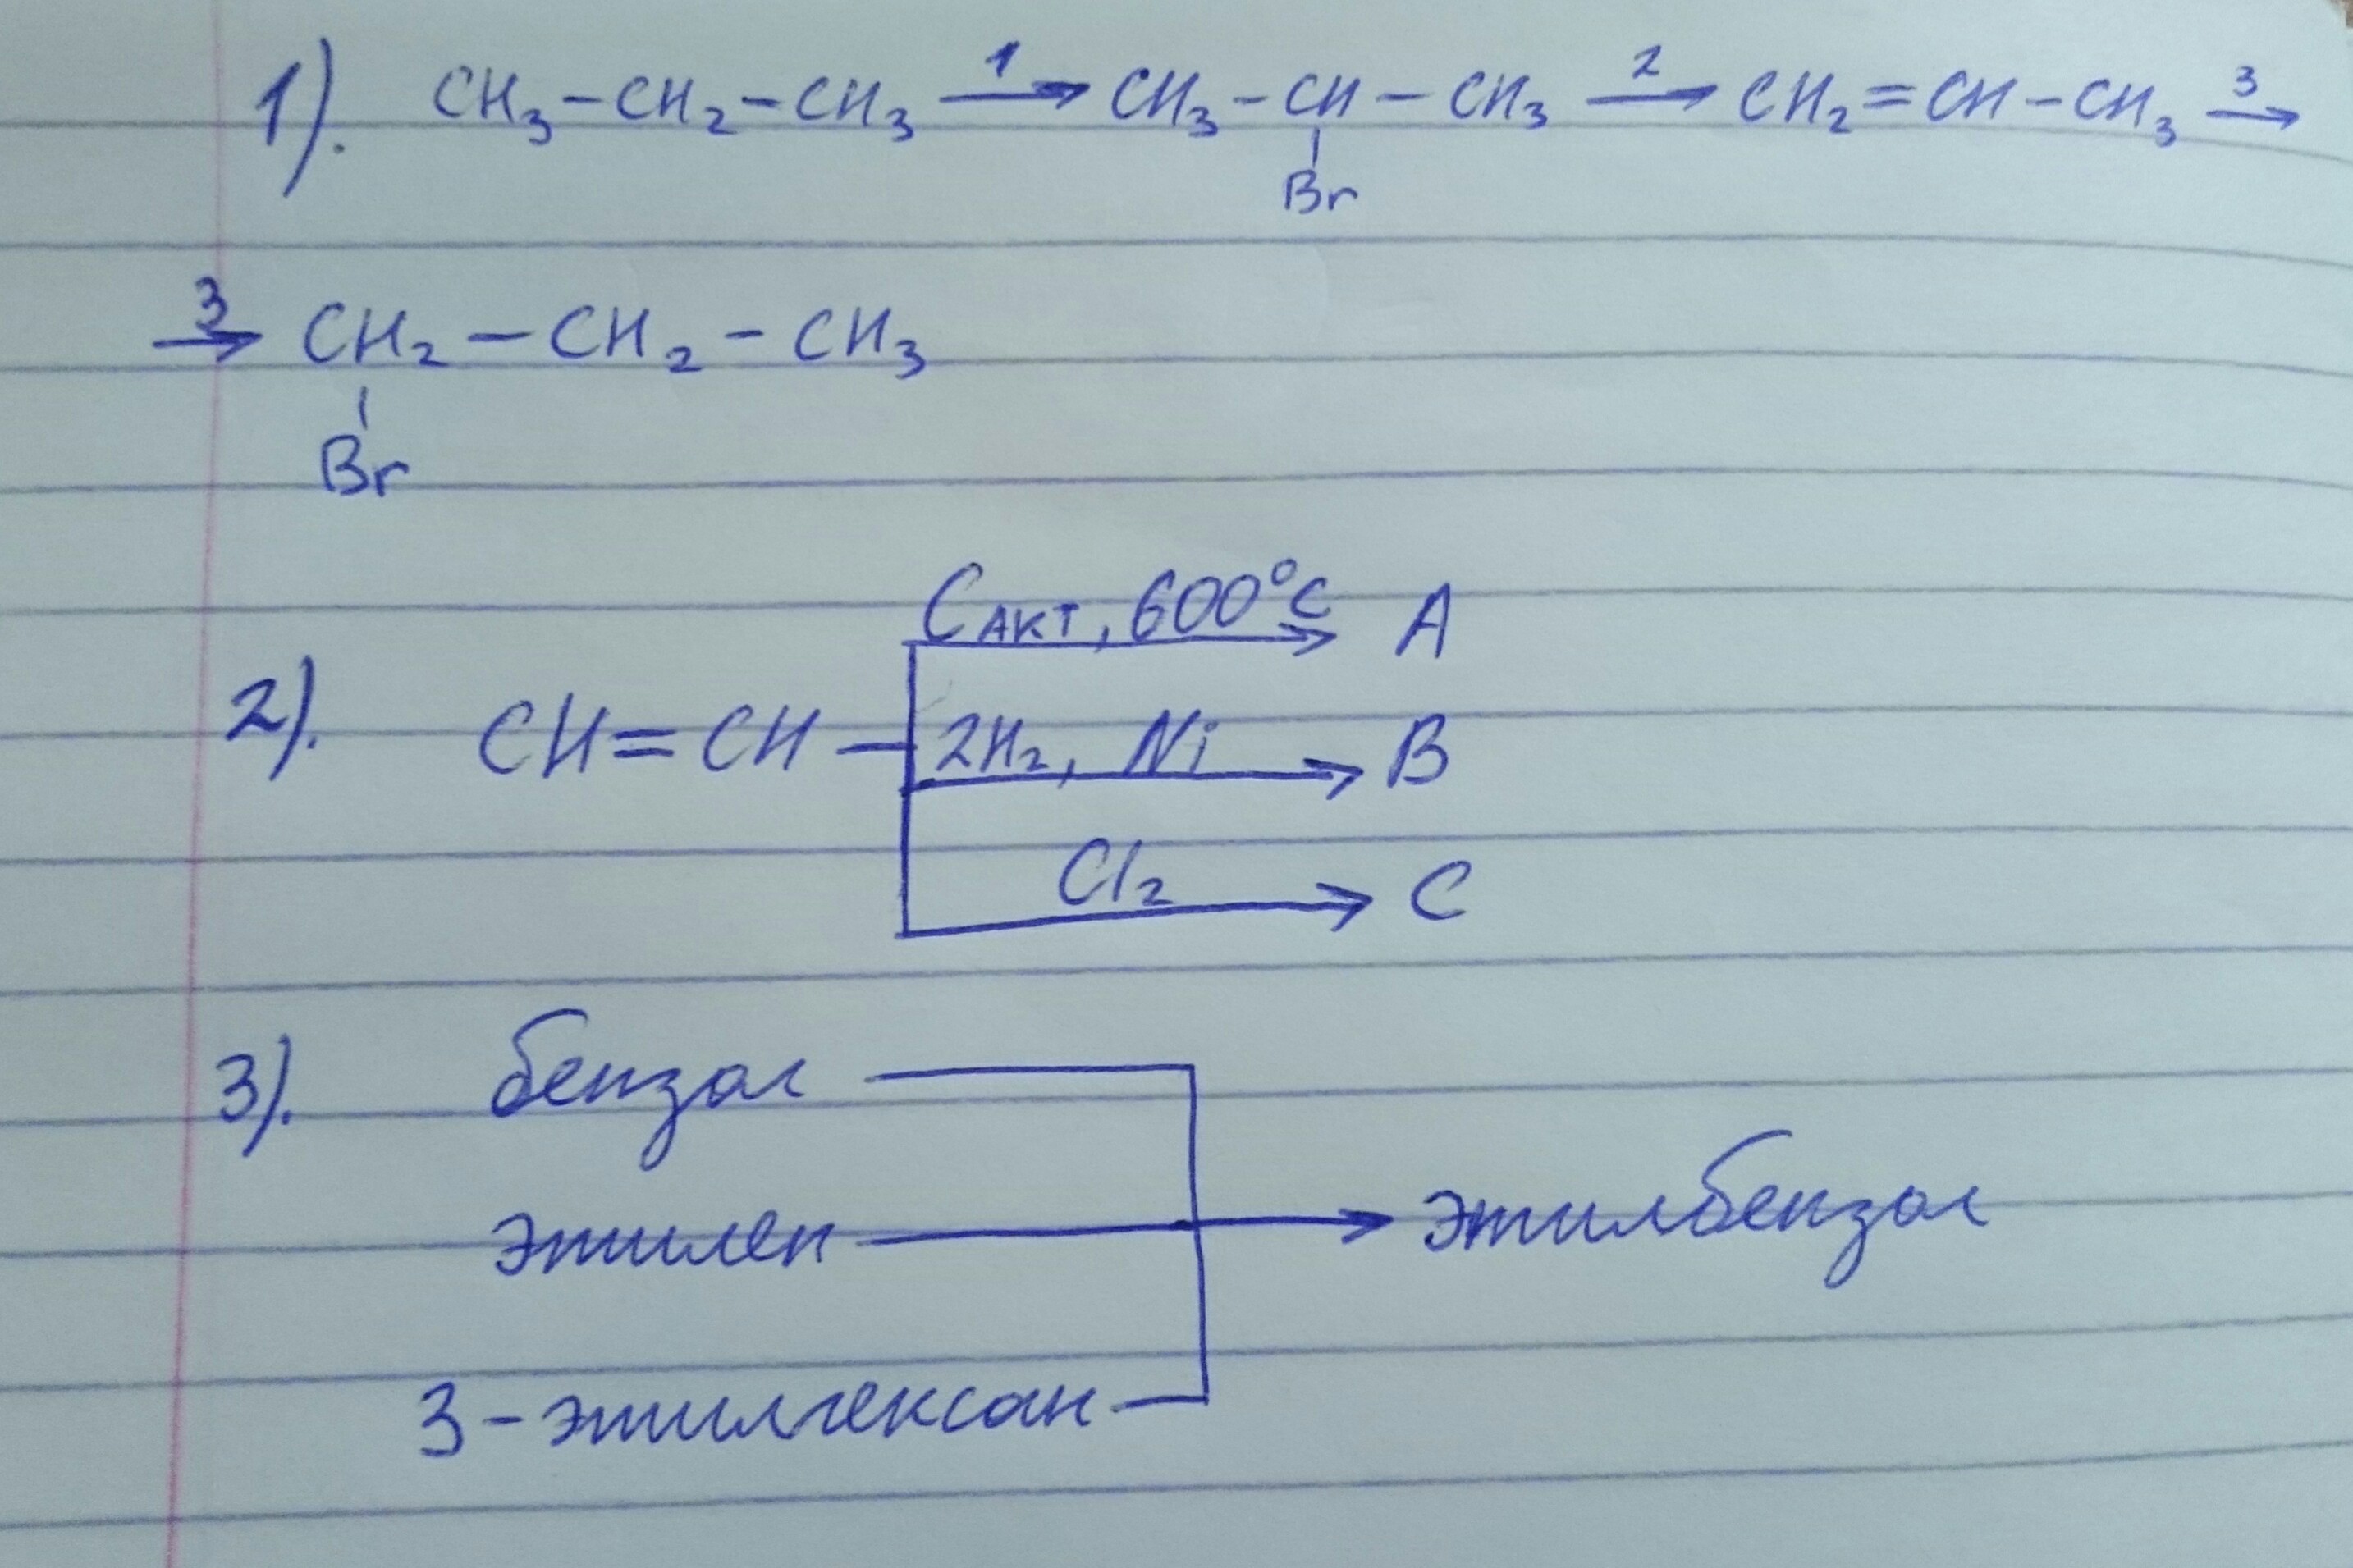 1). CH₃-CH₂-CH₃ 1→ CH₃-CH-CH₃ 2→ CH₂=CH-CH₃ 3→
Br
3→ CH₂-CH₂-CH₃
Br
Cакт, 600°C → A
2). CH=CH- 2H₂, Ni → B
Cl₂ → C
3). бензол
этилен → этилбензол
3-этилгексан